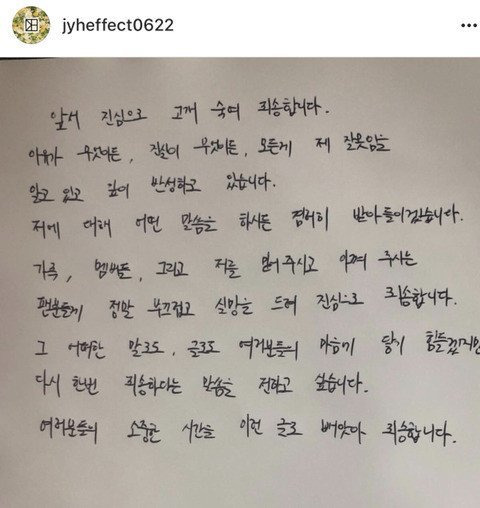 jyheffect0622
앞서 진심으로 고개 숙여 죄송합니다.
이유가 무엇이든, 진실이 무엇이든, 모든게 제 잘못임을
알고 있고 깊이 반성하고 있습니다.
저에 대해 어떤 말씀을 하시든 겸허히 받아들이겠습니다.
가족, 멤버들, 그리고 저를 믿어주시고 아껴 주시는
팬분들게 정말 부끄럽고 실망을 드려 진심으로 죄송합니다.
그 어떠한 말로도, 글로도 여러분들의 마음이 닿기 힘들겠지만
다시 한번 죄송하다는 말씀을 전하고 싶습니다.
여러분들의 소중한 시간을 이런 글로 빼앗아 죄송합니다.